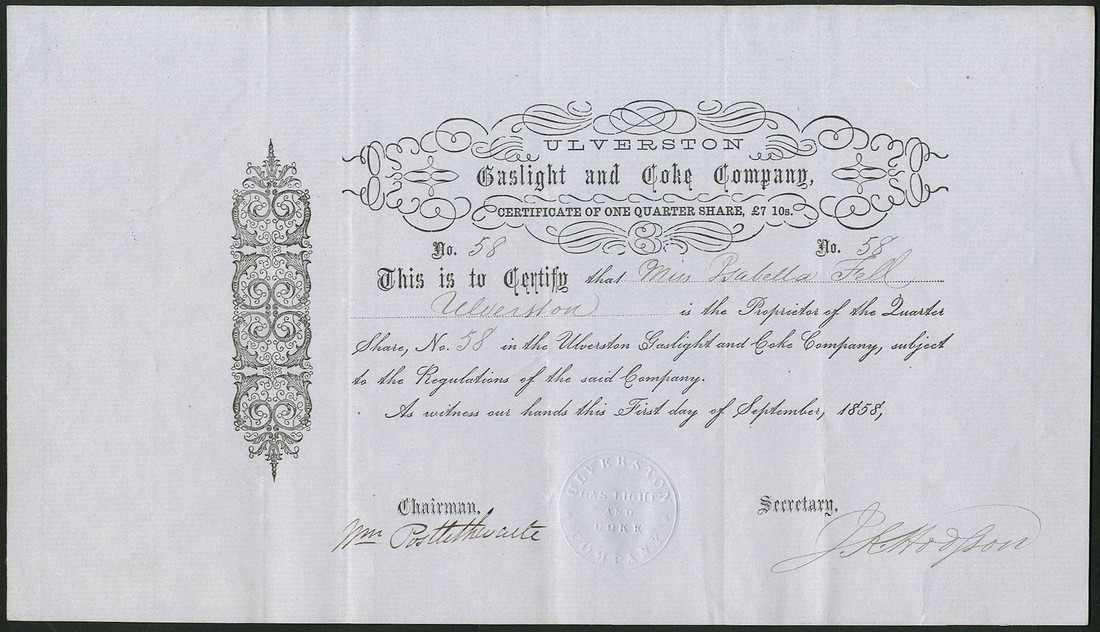 ULVERSTON
Gaslight and Coke Company,
CERTIFICATE OF ONE QUARTER SHARE, £7 10s.
No. 58 No. 58
This is to Certify that Miss Isabella Fell
Ulverston is the Proprietor of the Quarter
Share, No. 58 in the Ulverston Gaslight and Coke Company, subject
to the Regulations of the said Company.
As witness our hands this First day of September, 1858,
ULVERSTON
GAS LIGHT
AND
COKE
COMPANY
Chairman, Secretary,
Wm Postlethwaite J K Hodgson